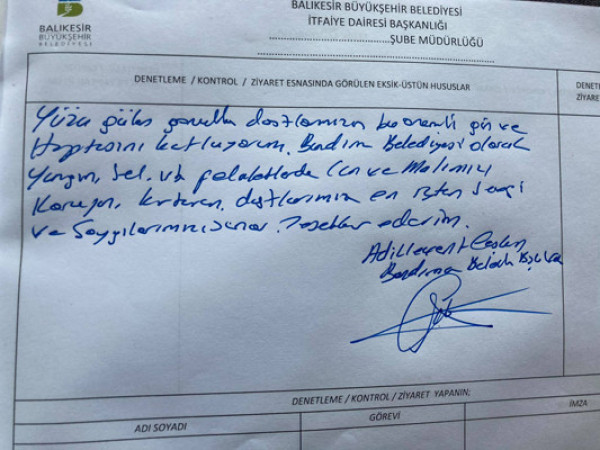 BALIKESİR
BÜYÜKŞEHİR
BELEDİYESİ
BALIKESİR BÜYÜKŞEHİR BELEDİYESİ
İTFAİYE DAİRESİ BAŞKANLIĞI
ŞUBE MÜDÜRLÜĞÜ
DENETLEME / KONTROL / ZİYARET ESNASINDA GÖRÜLEN EKSİK-ÜSTÜN HUSUSLAR
DENETL
ZİYARE
Yüzü gülen gönüllü dostlarımızın bu önemli gün ve
Haftasını kutluyorum. Bandırma Belediyesi olarak
Yangın, sel, vb felaketlerde Can ve Malımızı
Koruyan, kurtaran, dostlarımıza en içten sevgi
ve Saygılarımızı sunar, Teşekkür ederim.
Bandırma Belediye
DENETLEME / KONTROL / ZİYARET YAPANIN;
ADI SOYADI
GÖREVİ
İMZA